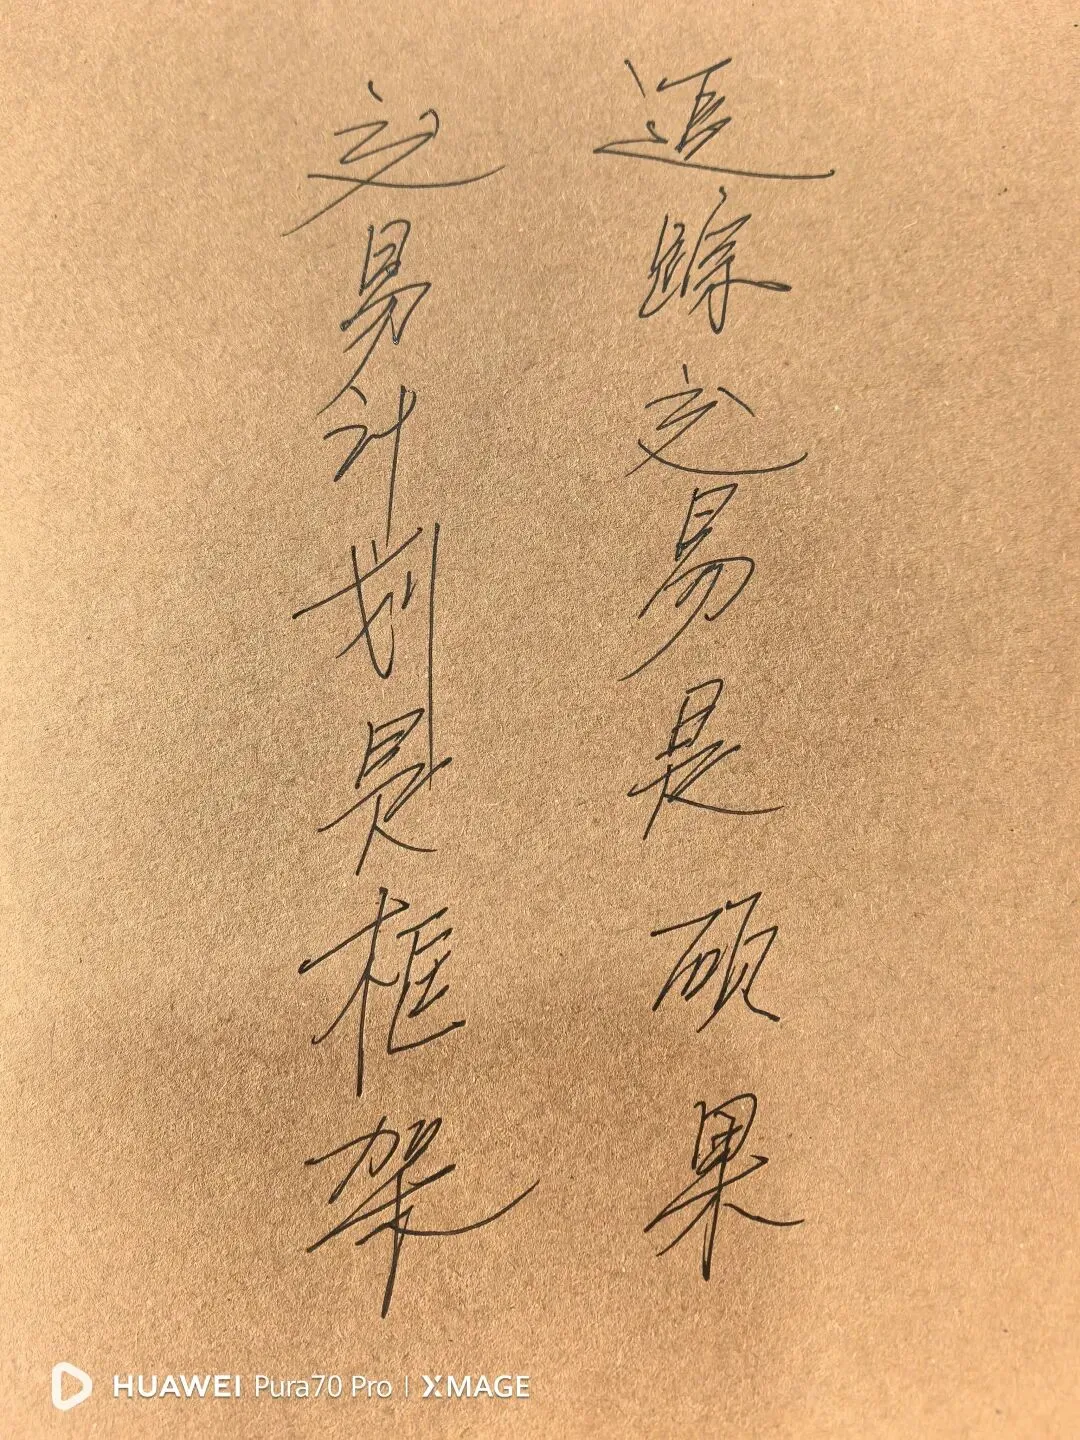 追踪交易是硕果
交易计划是框架
HUAWEI Pura70 Pro | XMAGE